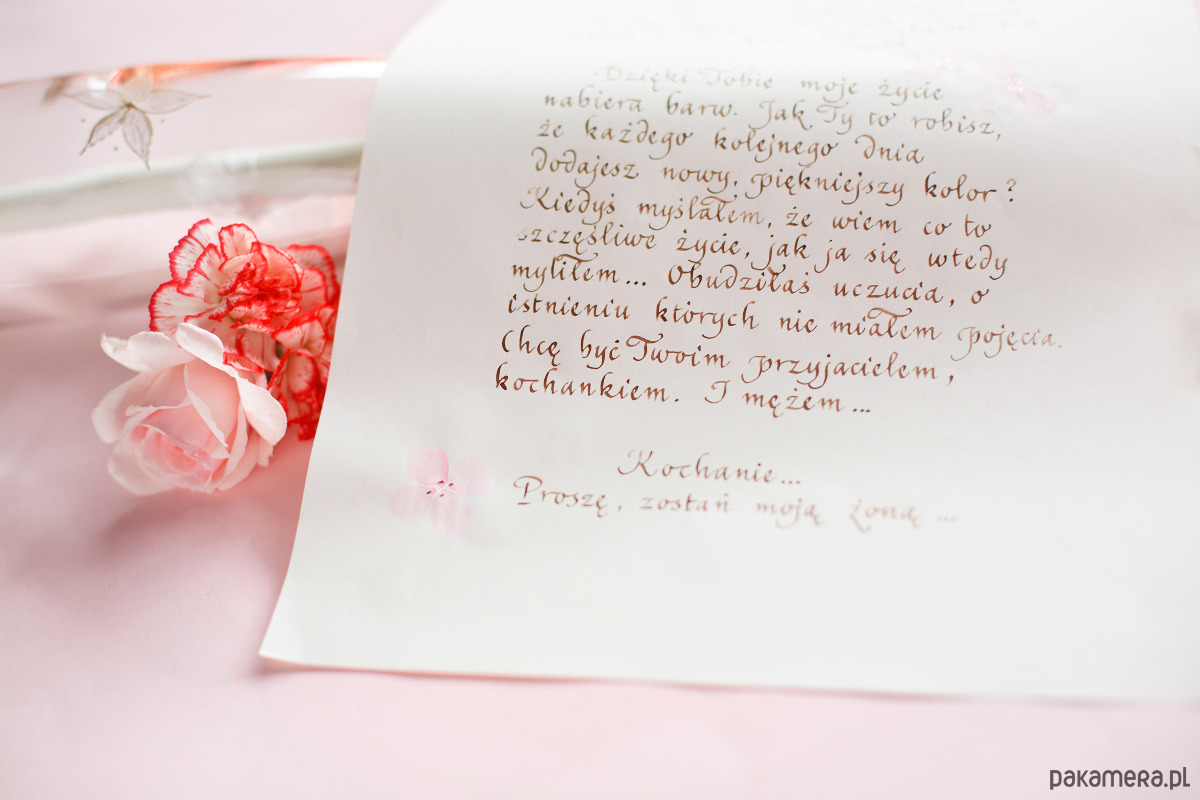 Dzięki Tobie moje życie
nabiera barw. Jak Ty to robisz,
że każdego kolejnego dnia
dodajesz nowy, piękniejszy kolor?
Kiedyś myślałem, że wiem co to
szczęśliwe życie, jak ja się wtedy
myliłem... Obudziłaś uczucia, o
istnieniu których nie miałem pojęcia.
Chcę być Twoim przyjacielem,
kochankiem. I mężem...
Kochanie...
Proszę, zostań moją żoną ...
pakamera.pl